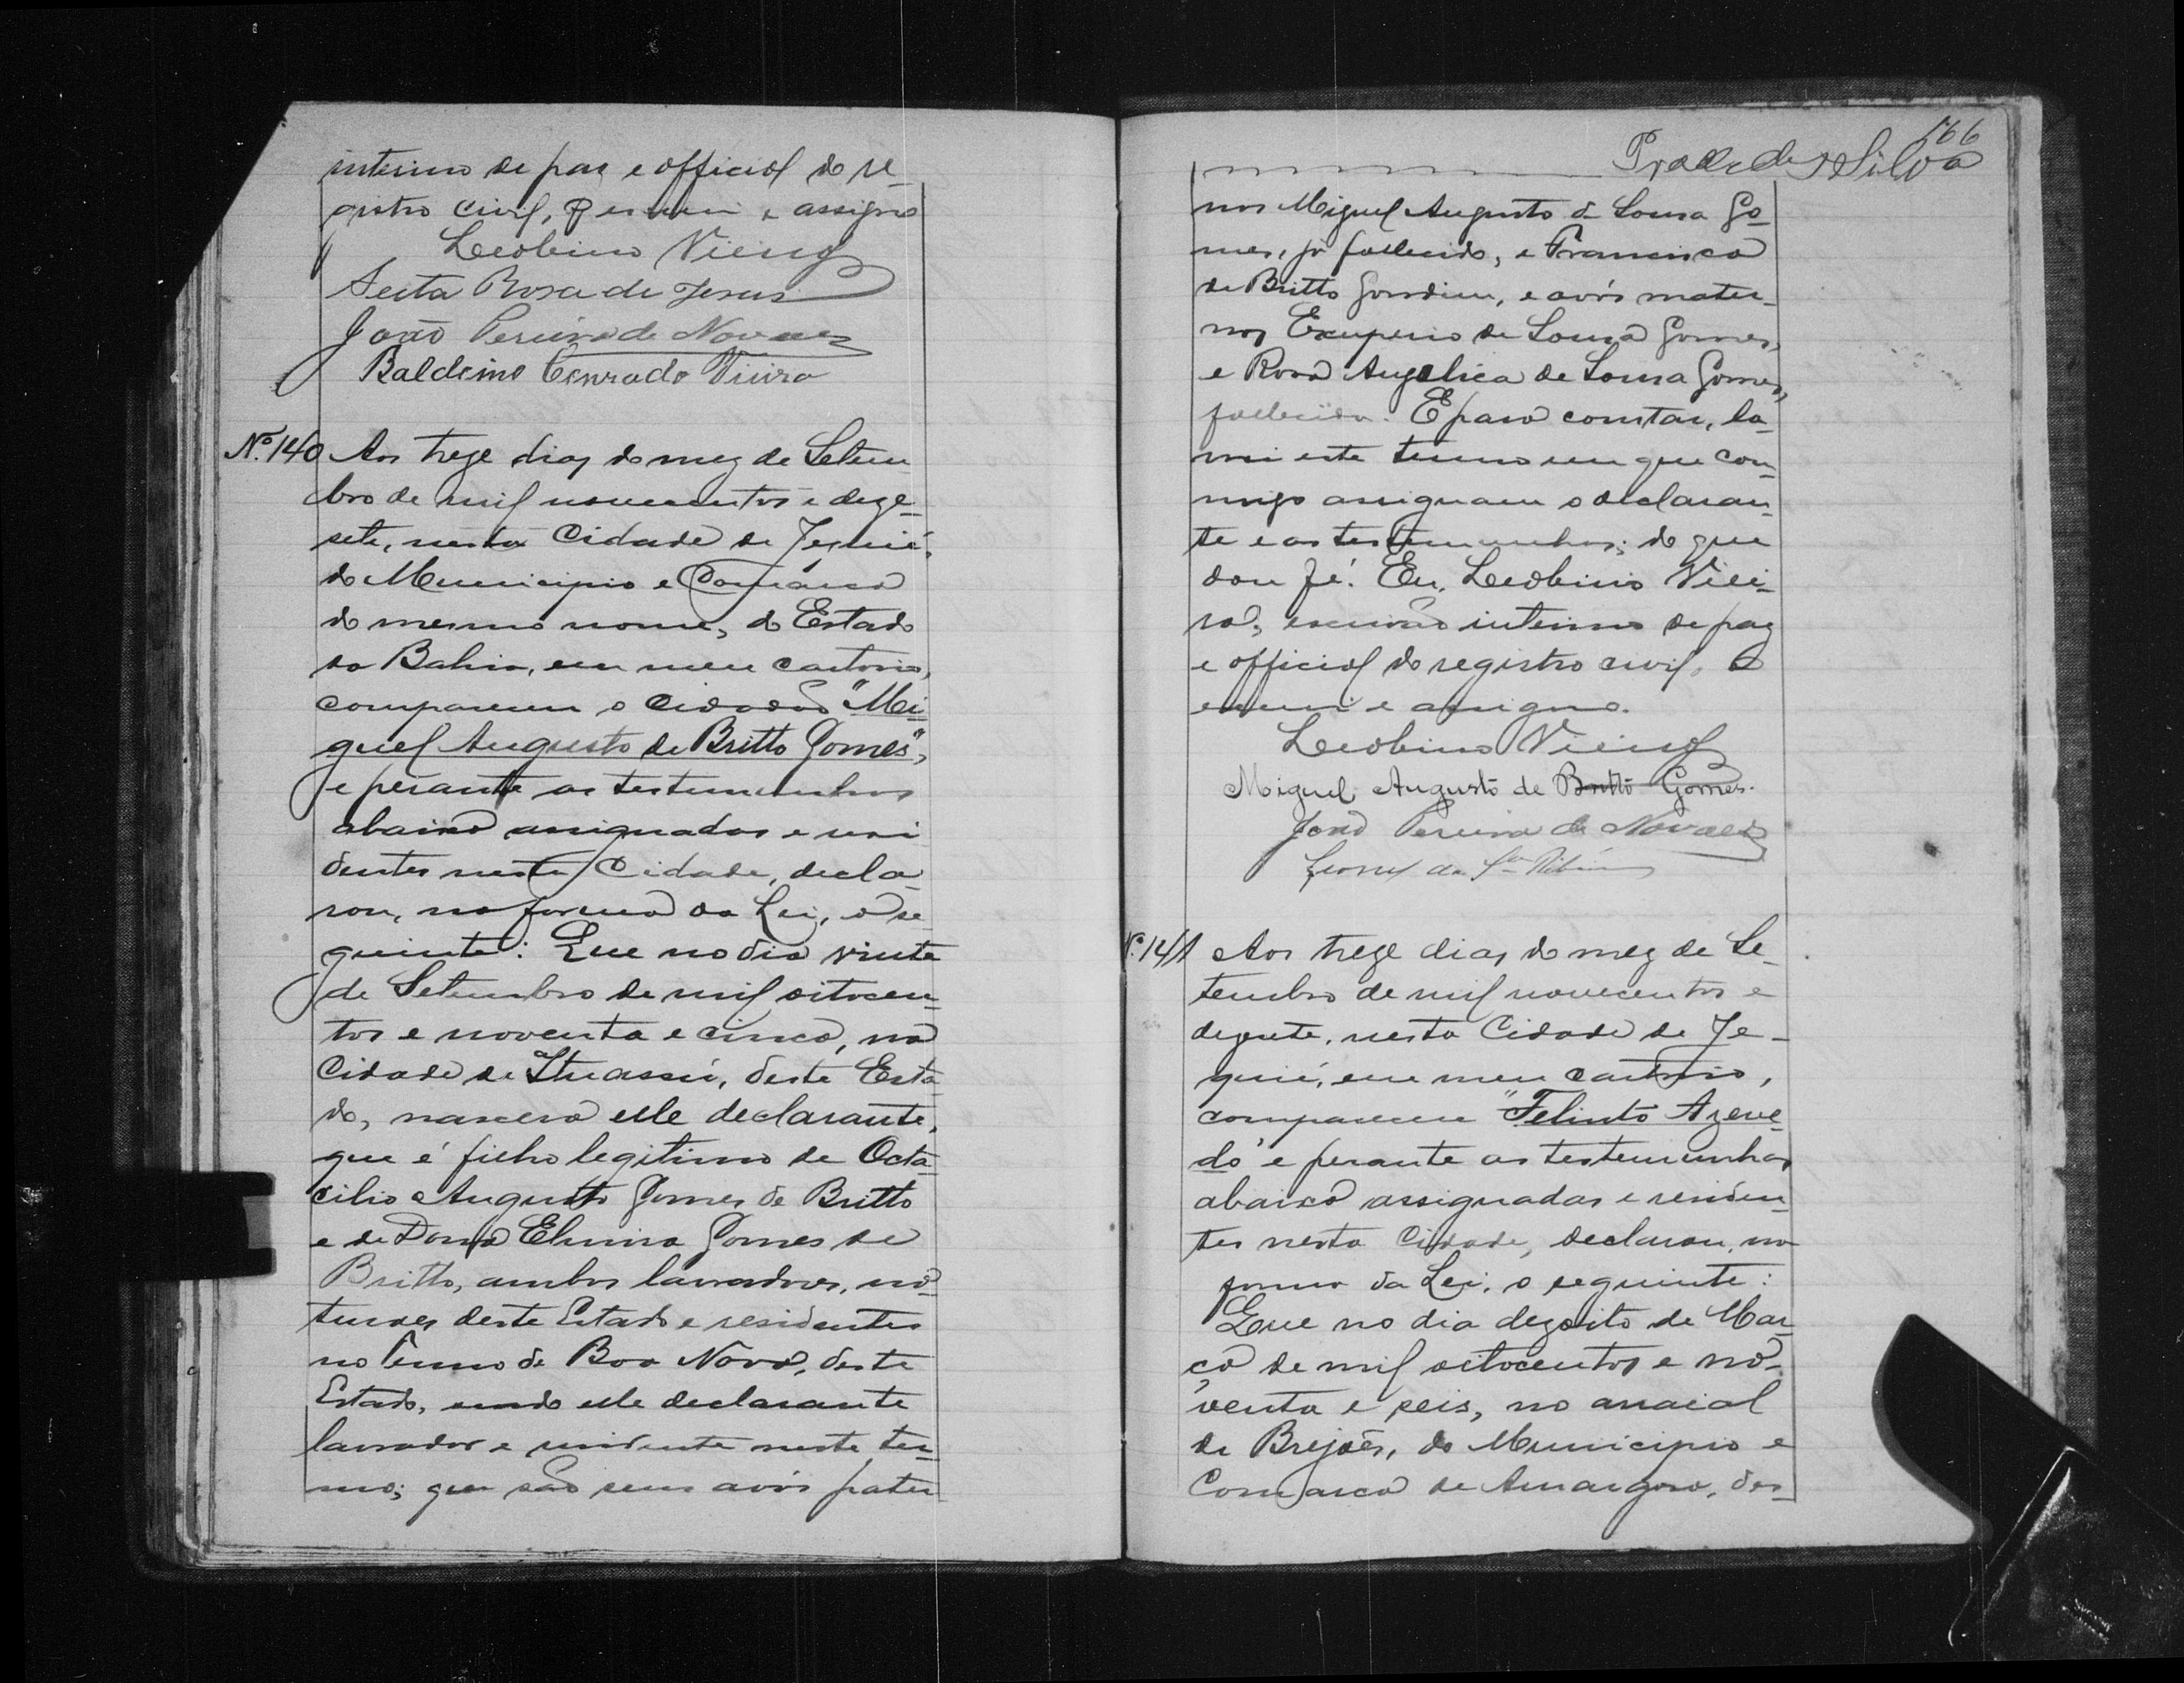 interino de paz e official do re-
gistro civil, o escrevi e assigno
Leobino Vieira
Seita Rosa de Jesus
João Pereira de Novaes
Baldoino Conrado Vieira
Nº. 140 Aos treze dias do mez de Setem
bro de mil novecentos e deze-
sete, nesta Cidade de Jequié,
do Municipio e Comarca
do mesmo nome, do Estado
da Bahia, em meu cartorio,
compareceu o Cidadão "Mi-
guel Augusto de Britto Gomes",
e perante as testemunhas
abaixo assignadas e resi
dentes nesta Cidade, decla-
rou, na forma da Lei, o se-
guinte: Que no dia vinte
de Setembro de mil oitocen-
tos e noventa e cinco, na
Cidade de Ituassú, deste Esta-
do, nascera elle declarante,
que é filho legitimo de Octa-
cilio Augusto Gomes de Britto
e de Dona Elmira Gomes de
Britto, ambos lavradores, na-
turaes deste Estado e residentes
no Termo de Boa Nova, deste
Estado, sendo elle declarante
lavrador e residente neste ter-
mo; que são seus avós pater
166
Silva
nos Miguel Augusto de Sousa Go-
mes, já fallecido, e Francisca
de Britto Gondim, e avós mater-
nos Exuperio de Sousa Gomes,
e Rosa Angelica de Sousa Gomes,
fallecida. E para constar, la-
vrei este termo em que com-
migo assignam o declaran-
te e as testemunhas; do que
dou fé. Eu, Leobino Viei-
ra, escrivão interino de paz
e official do registro civil, o
escrevi e assigno.
Leobino Vieira
Miguel Augusto de Britto Gomes.
João Pereira de Novaes
Leonel da Sª Ribeiro
Nº. 141 Aos treze dias do mez de Se-
tembro de mil novecentos e
dezesete, nesta Cidade de Je-
quié, em meu cartorio,
compareceu "Felinto Azeve-
do" e perante as testemunhas
abaixo assignadas e residen-
tes nesta Cidade, declarou, na
forma da Lei, o seguinte:
Que no dia dezoito de Mar-
ço de mil oitocentos e no-
venta e seis, no arraial
de Brejões, do Municipio e
Comarca de Amargosa, des-